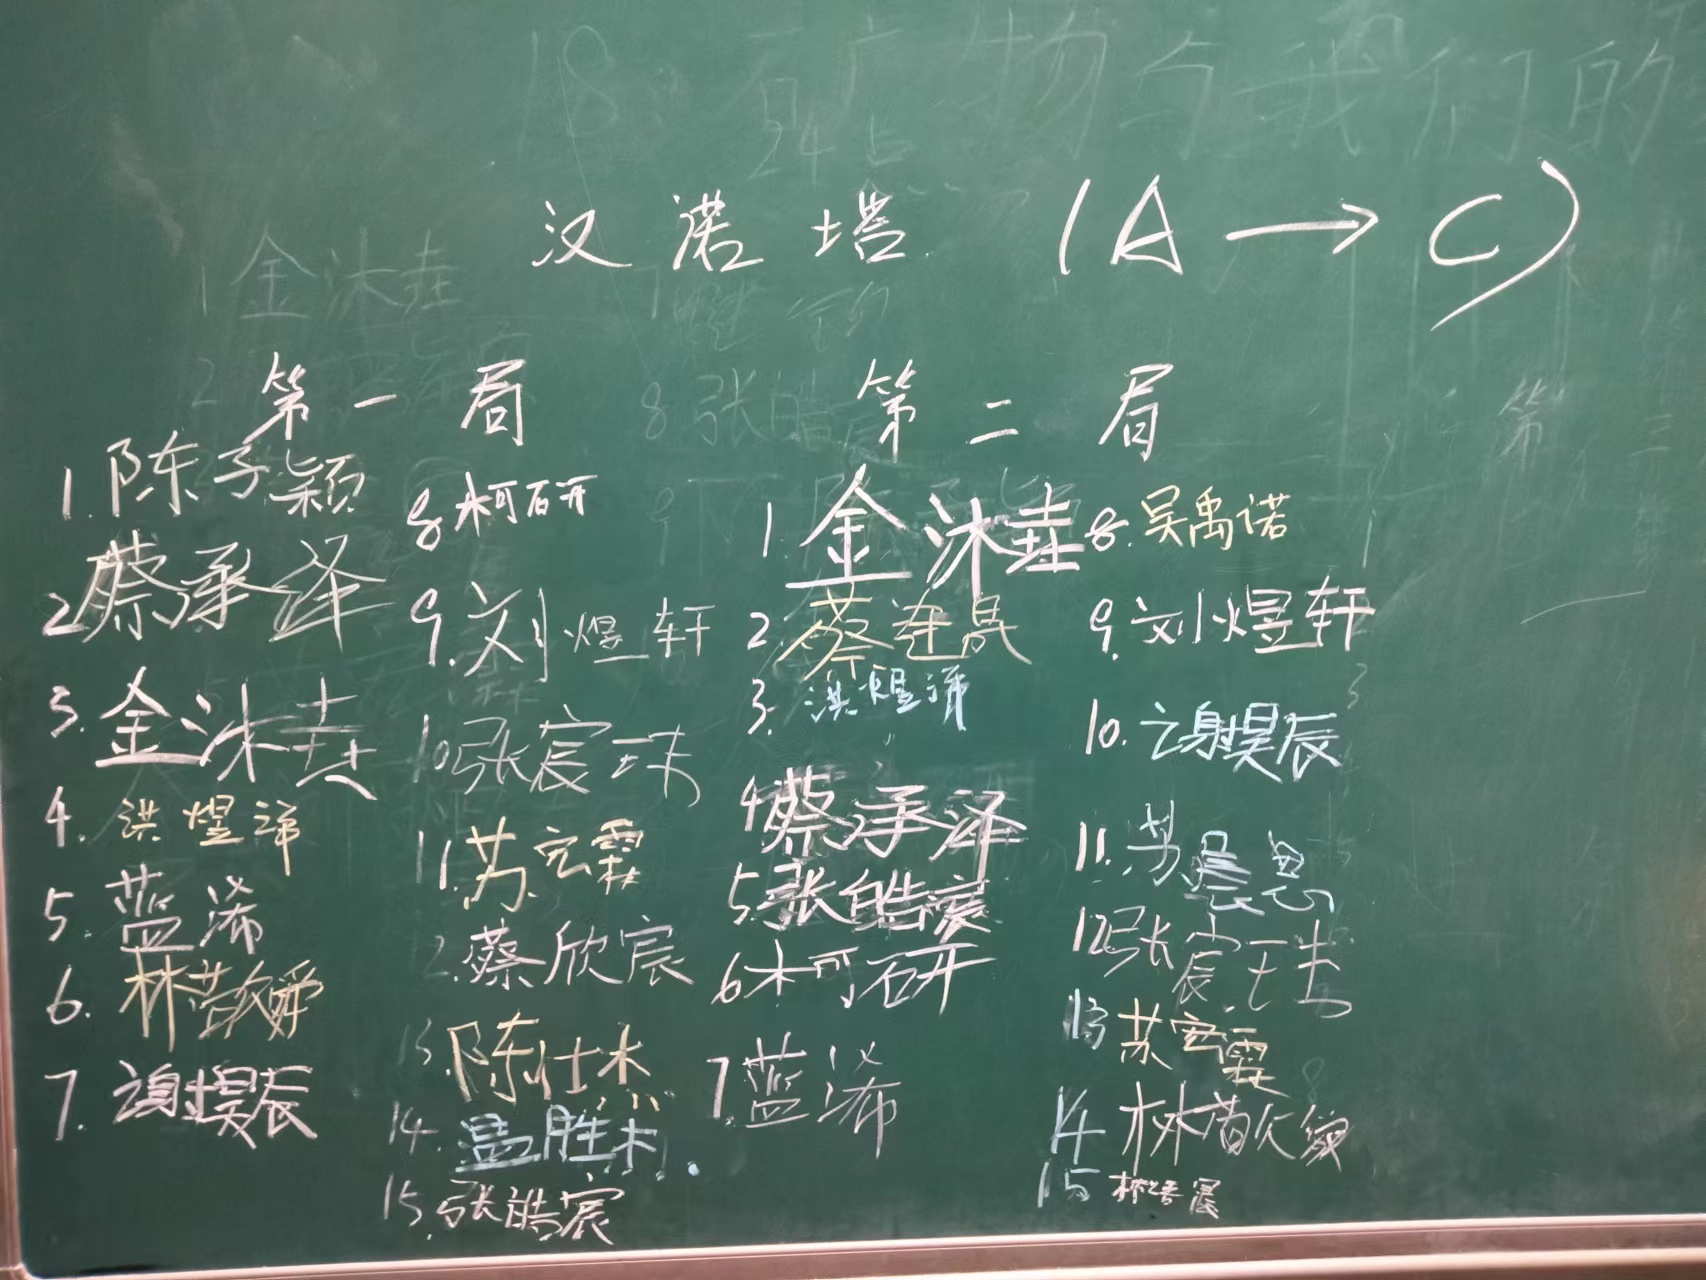 汉诺塔 (A → C)
第一局
1. 陈子颖
2 蔡承泽
3. 金沐垚
4. 洪煜沛
5. 蓝浠
6. 林歆舜
7. 谢昊辰
8 柯研
9. 刘煜轩
10 张宸玮
11. 苏宏霖
2. 蔡欣宸
13. 陈仕杰
14. 温胜杰.
15. 张皓宸
第二局
1. 金沐垚
2 蔡建晟
3. 洪煜沛
4 蔡承泽
5. 张皓宸
6 柯研
7. 蓝浠
8. 吴禹诺
9. 刘煜轩
10. 谢昊辰
11. 苏晨恩
12 张宸玮
13 苏宏霖
14 林
15 林